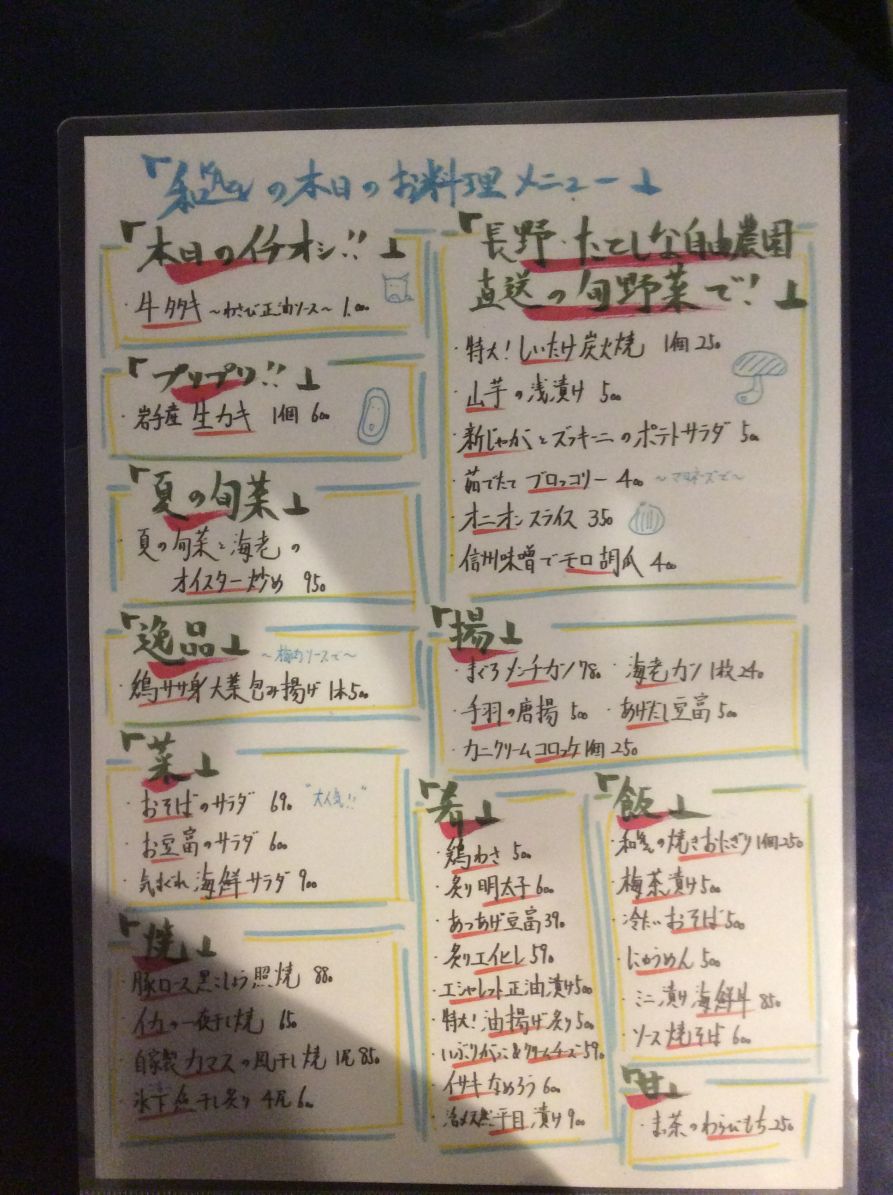 の本日のお料理メニュー」
「本日のイチオシ!!」
・牛タタキ ～わさび正油ソース～ 1.000
「プリプリ!!」
・岩手産 生カキ 1個 600
「夏の旬菜」
・夏の旬菜と海老の
オイスター炒め 950
「逸品」
～梅肉ソースで～
・鶏ササ身大葉包み揚げ 1本500
「菜」
・おそばのサラダ 690 "大人気!!"
・お豆富のサラダ 600
・気まぐれ海鮮サラダ 900
「焼」
・豚ロース黒こしょう照焼 880
・イカの一夜干し焼 650
・自家製カマスの風干し焼 1尾850
・氷下魚干し炙り 4尾600
「長野・たてしな自由農園
直送の旬野菜で!」
・特大!しいたけ炭火焼 1個250
・山芋の浅漬け 500
・新じゃがとズッキーニのポテトサラダ 500
・茹でたてブロッコリー 400 ～マヨネーズで～
・オニオンスライス 350
・信州味噌でモロ胡瓜 400
「揚」
・まぐろメンチカツ780 ・海老カツ 1枚240
・手羽の唐揚 500 ・あげだし豆富 500
・カニクリームコロッケ1個 250
「肴」
・鶏わさ 500
・炙り明太子 600
・あつあげ豆富 390
・炙りエイヒレ 590
・エシャレット正油漬け500
・特大!油揚げ炙り 500
・いぶりがっこ&クリームチーズ590
・イサキなめろう 600
平目漬け 900
「飯」
の焼きおにぎり1個250
・梅茶漬け500
・冷たいおそば500
・にゅうめん 500
・ミニ漬け海鮮丼 850
・ソース焼そば 600
「甘」
・お茶のわらびもち250